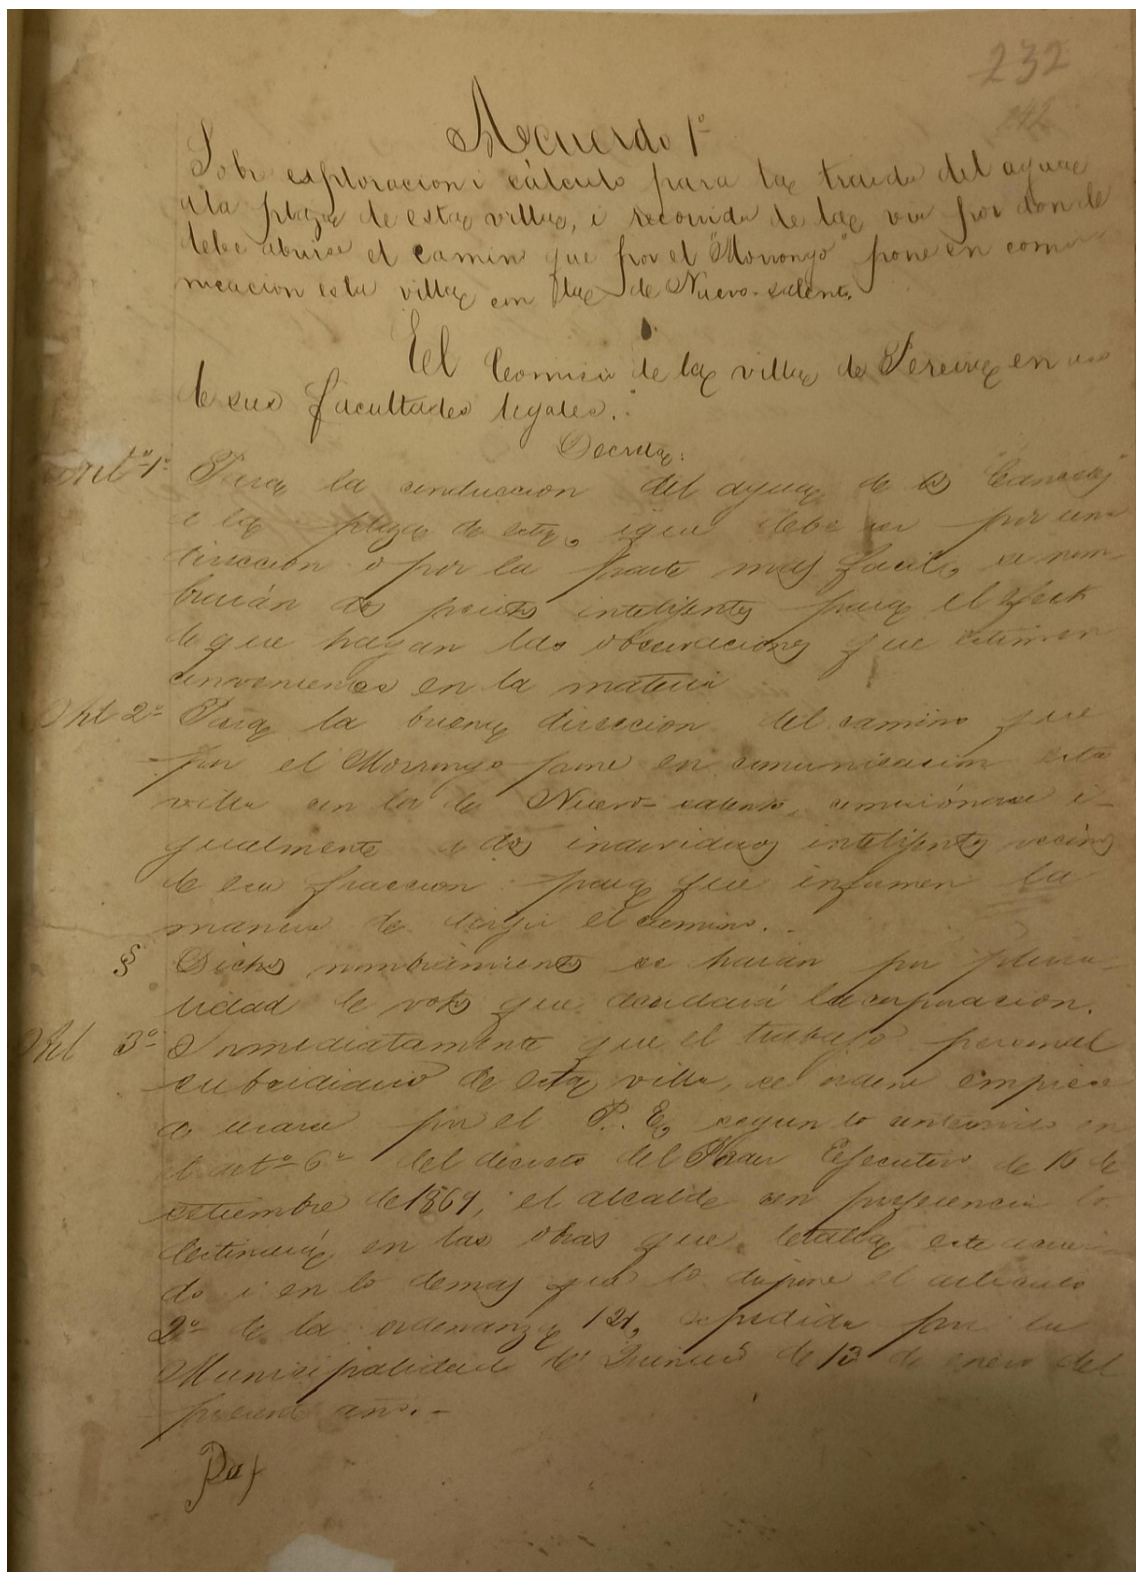 232
242
Acuerdo 1º
Sobre esploracion i cálculo para la traida del agua
a la plaza de esta villa, i recorrida de la via por donde
debe abrirse el camino que por el "Morrongo" pone en comu
nicacion esta villa con la de Nuevo-salento.
El Comisio de la villa de Pereira en uso
de sus facultades legales.
Decreta:
Artº 1º Para la conduccion del agua de
a la plaza de esta, i que debe ser por una
direccion o por la parte mas facil, se nom
brarán dos peritos intelijentes para el efecto
de que hagan las observaciones que estimen
convenientes en la materia
Art 2º Para la buena direccion del camino que
por el Morrongo pone en comunicacion esta
villa con la de Nuevo-salento, comisiónase i-
gualmente a dos individuos intelijentes vecinos
de esa fraccion para que informen la
manera de dirijir el camino.
§ Dichos nombramientos se harán por plura-
lidad de votos que la corporacion.
Art 3º Inmediatamente que el trabajo personal
subsidiario de esta villa, se ordene empiece
a usarse por el P. E, segun lo en
el artº 6º del decreto del Poder Ejecutivo de de
setiembre de 1869, el alcalde con preferencia lo
destinará en las obras que detalla este acuer
do i en lo demas que lo dispone el articulo
2º de la ordenanza 121, espedida por la
Municipalidad del Quindio de 13 de enero del
presente año.-